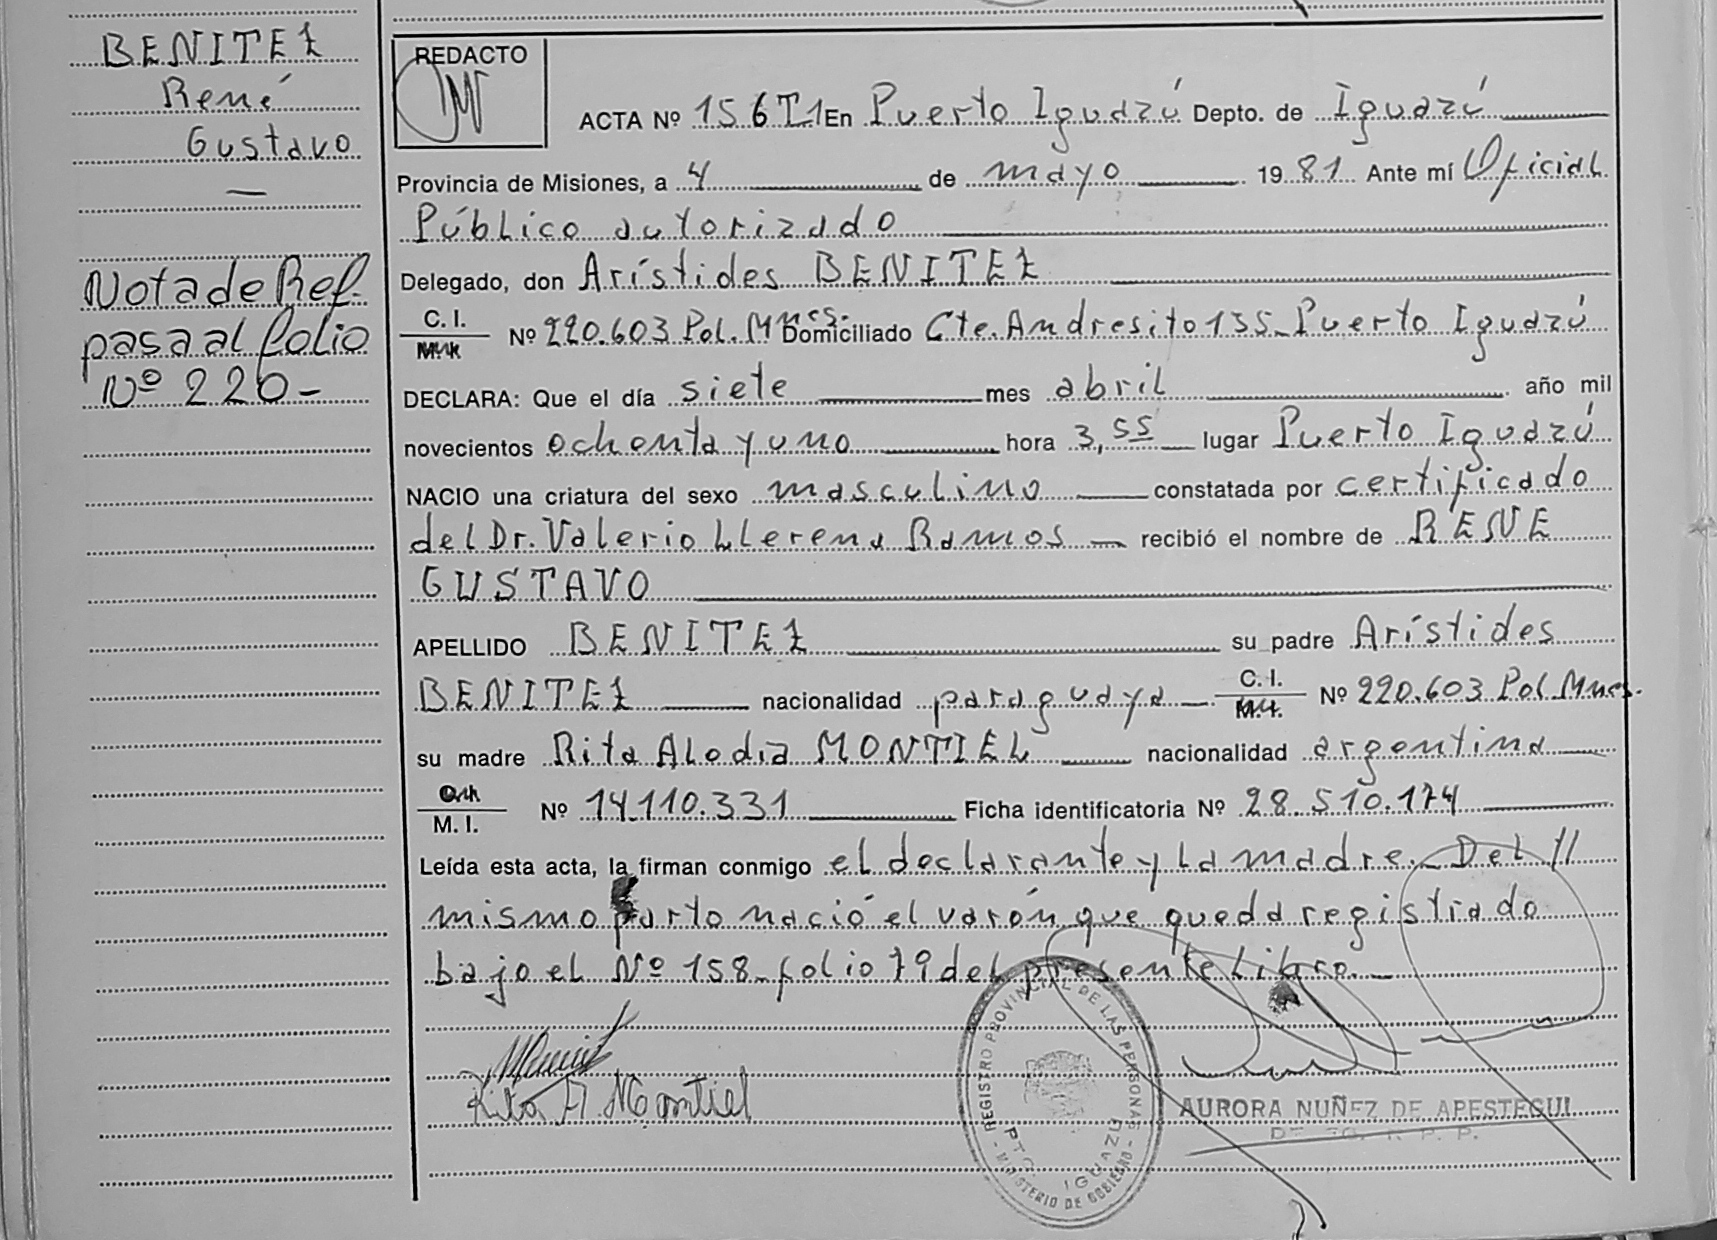 BENITEZ
René
Gustavo
—
Nota de Ref.
pasa al folio
Nº 220-
REDACTO
ACTA Nº 156 T1 En Puerto Iguazú Depto. de Iguazú
Provincia de Misiones, a 4 de mayo 1981 Ante mí Oficial
Público autorizado
Delegado, don Arístides BENITEZ
C. I. Nº 220.603 Pol. Mnes. Domiciliado Cte. Andresito 155_Puerto Iguazú
DECLARA: Que el día siete mes abril año mil
novecientos ochenta y uno hora 3,55 lugar Puerto Iguazú
NACIO una criatura del sexo masculino constatada por certificado
del Dr. Valerio Llerena Ramos recibió el nombre de RENE
GUSTAVO
APELLIDO BENITEZ su padre Arístides
BENITEZ nacionalidad paraguaya C. I. Nº 220.603 Pol. Mnes.
su madre Rita Alodia MONTIEL nacionalidad argentina
M. I. Nº 14.110.331 Ficha identificatoria Nº 28.510.174
Leída esta acta, la firman conmigo el declarante y la madre._ Del //
mismo parto nació el varón que queda registrado
bajo el Nº 158_folio 79 del presente Libro._
Rita A. Montiel
REGISTRO PROVINCIAL DE LAS PERSONAS
PTO. IGUAZU
- MINISTERIO DE GOBIERNO -
AURORA NUÑEZ DE APESTEGUI